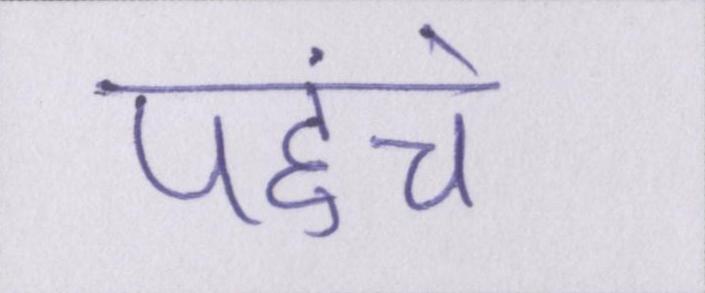 पहुंचे